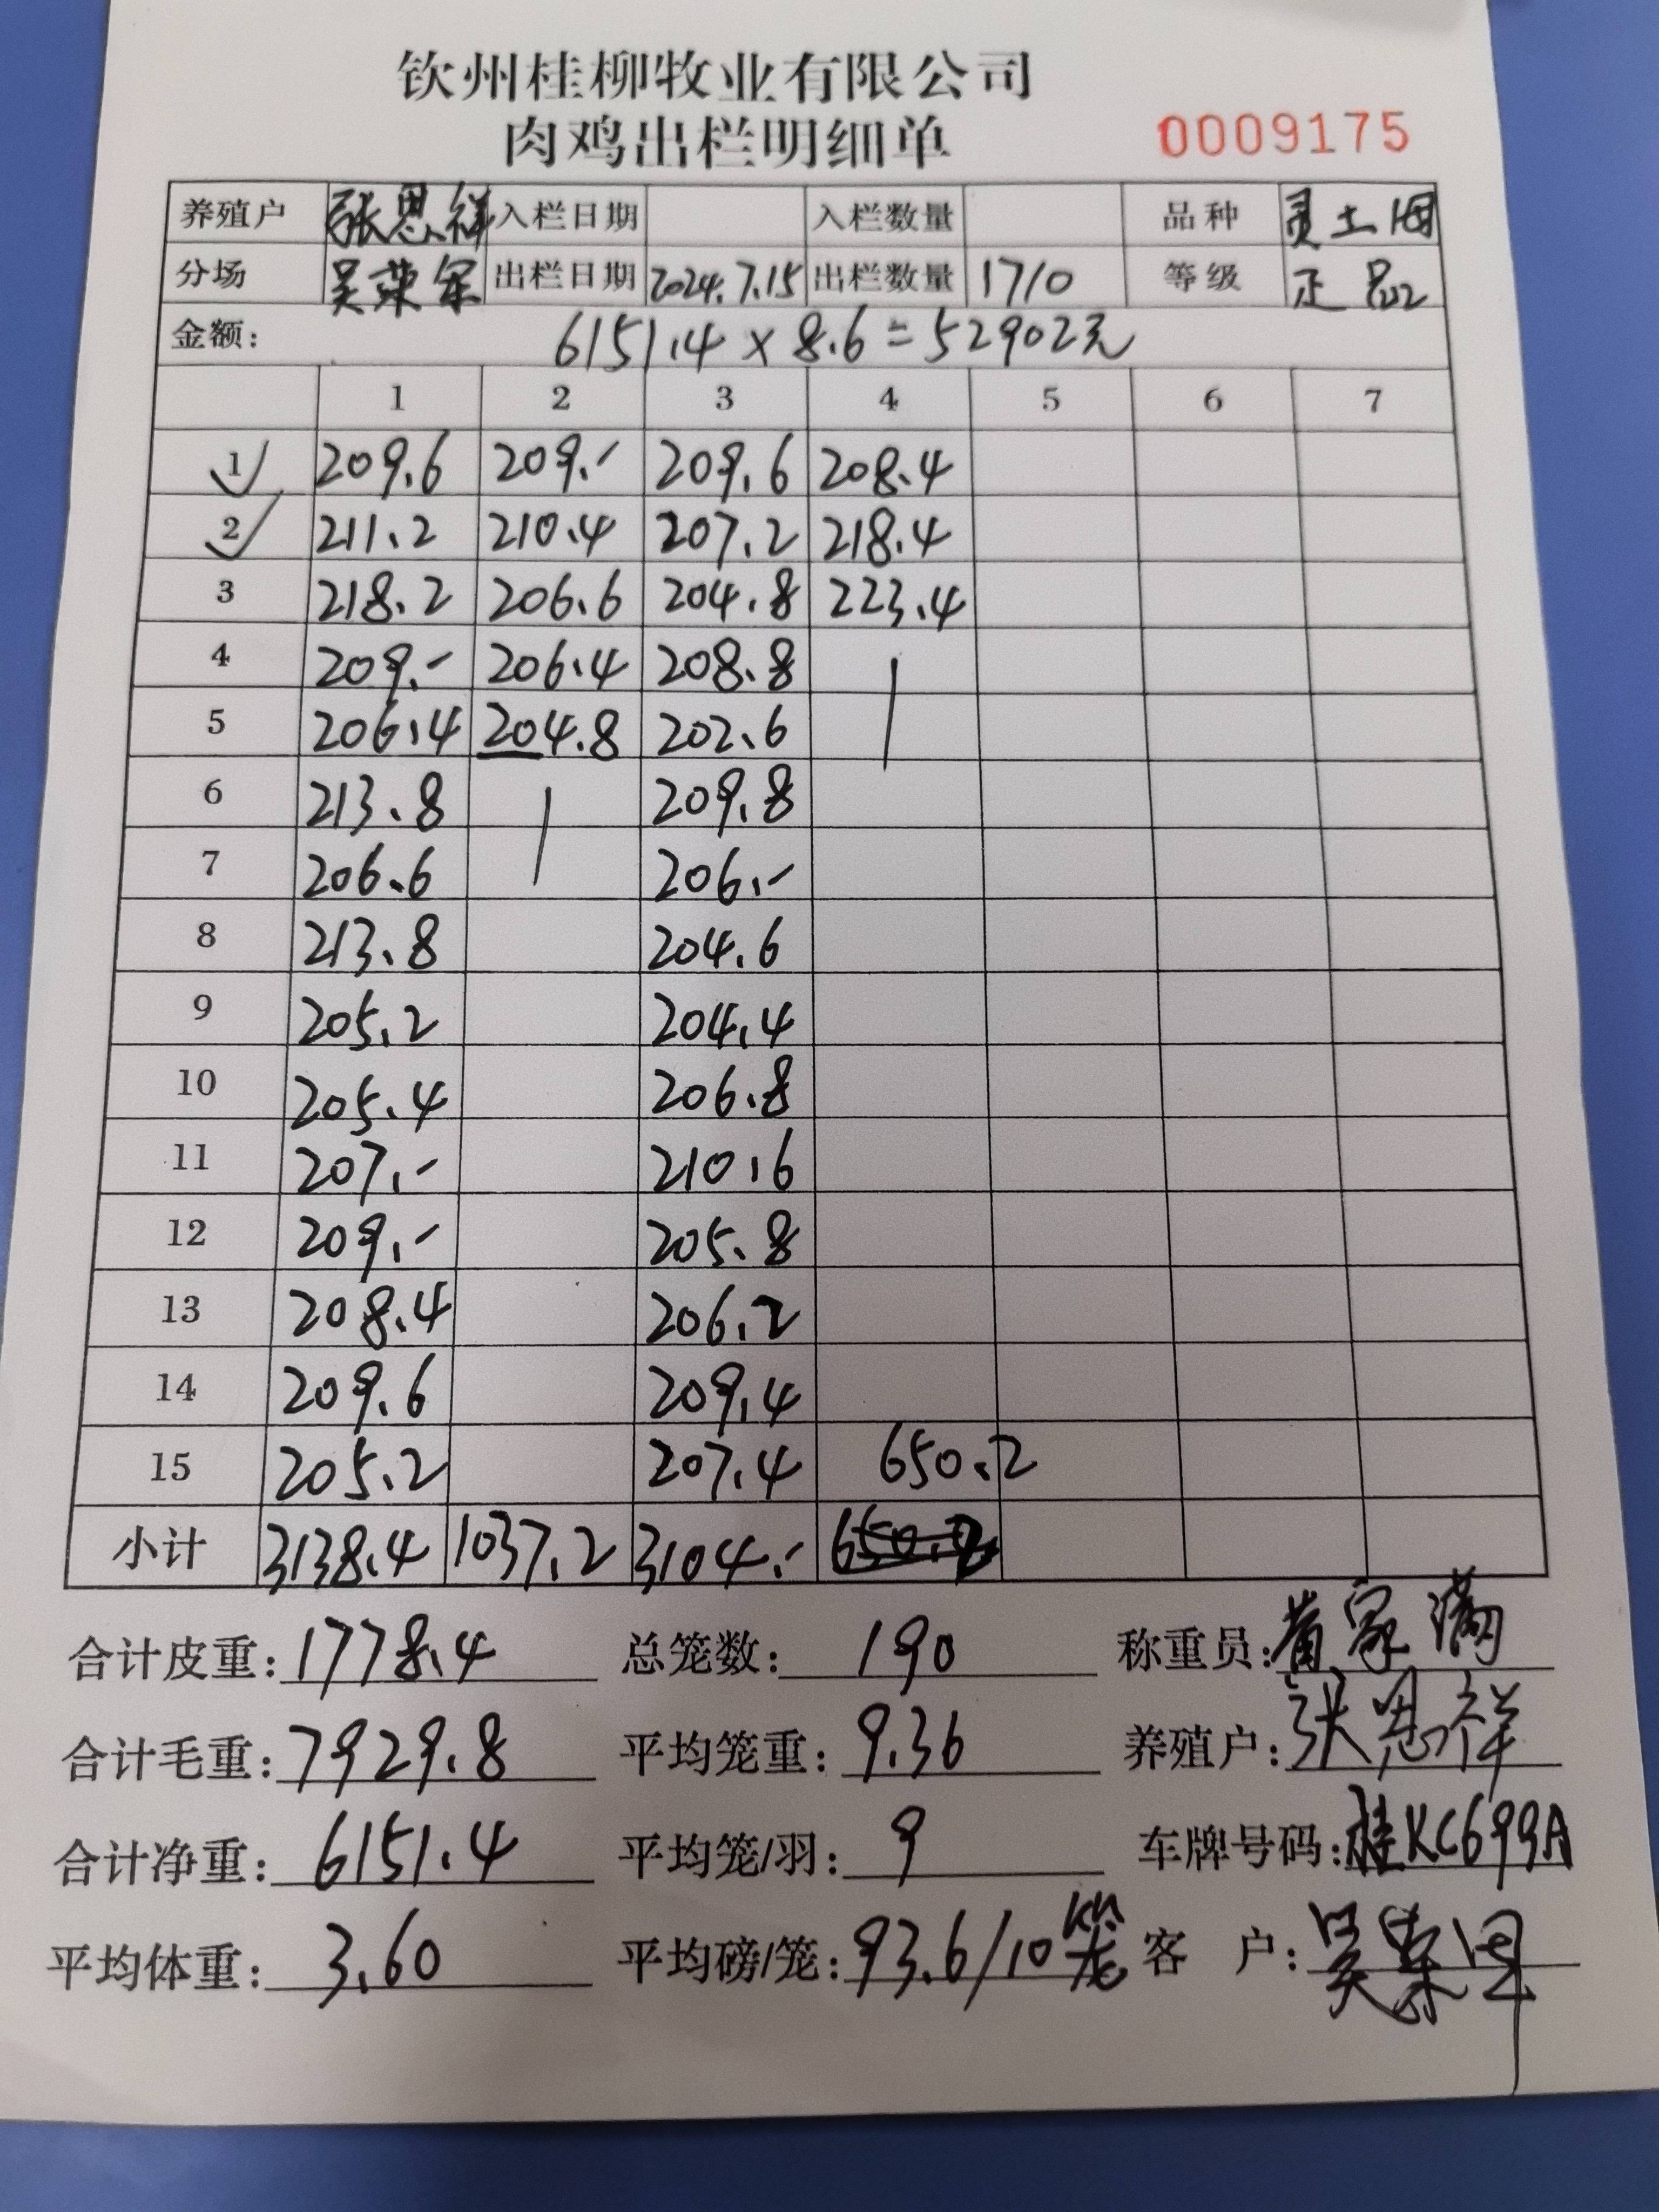 钦州桂柳牧业有限公司
肉鸡出栏明细单 0009175
养殖户 张思祥 入栏日期 入栏数量 品种 灵土
分场 吴荣军 出栏日期 2024.7.15 出栏数量 1710 等级 正品
金额: 6151.4 × 8.6 = 52902元
1 2 3 4 5 6 7
1 209.6 209.- 209.6 208.4
2 211.2 210.4 207.2 218.4
3 218.2 206.6 204.8 223.4
4 209.- 206.4 208.8
5 206.4 204.8 202.6
6 213.8 209.8
7 206.6 206.-
8 213.8 204.6
9 205.2 204.4
10 205.4 206.8
11 207.- 210.6
12 209.- 205.8
13 208.4 206.2
14 209.6 209.4
15 205.2 207.4 650.2
小计 3138.4 1037.2 3104.-
合计皮重: 1778.4 总笼数: 190 称重员: 黄家满
合计毛重: 7929.8 平均笼重: 9.36 养殖户: 张思祥
合计净重: 6151.4 平均笼/羽: 9 车牌号码: 桂KC699A
平均体重: 3.60 平均磅/笼: 93.6/10笼 客户: 吴荣军